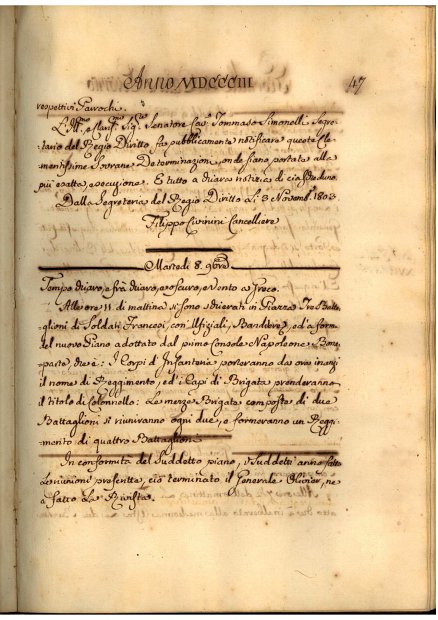 Anno MDCCCIII
47
respettivi Parrochi.
L'Ill.mo, e Clariss.o Sig.re Senatore Cav.re Tommaso Simonelli Segre-
tario del Regio Diritto, fa pubblicamente notificare queste Cle-
mentissime Sovrane Determinazioni, onde siano portate alla
più esatta esecuzione. E tutto a chiara notizia di ciascheduno.
Dalla Segreteria del Regio Diritto Li 3 Novemb.e 1803.
Filippo Civinini Cancelliere
Martedì 8. 9bre
Tempo chiaro, e frà chiaro, e oscuro, e vento a Greco.
Alle ore 11 di mattina si sono schierati in Piazza Tre Batta-
glioni di Soldati Francesi, con Ufiziali, Bandiere, ed a forma
del nuovo Piano adottato dal primo Console Napoleone Bona-
parte, che è: I Corpi d'Infanteria porteranno da ora inanzi
il nome di Reggimento, ed i Capi di Brigata prenderanno
il titolo di Colonnello: Le mezze Brigate composte di due
Battaglioni si riuniranno ogni due, e formeranno un Reggi-
mento di quattro Battaglioni
In conformità del Suddetto piano, i Suddetti anno fatto
le riunioni prosentte, ciò terminato il Generale Olivier, ne
è fatto la Rivista.